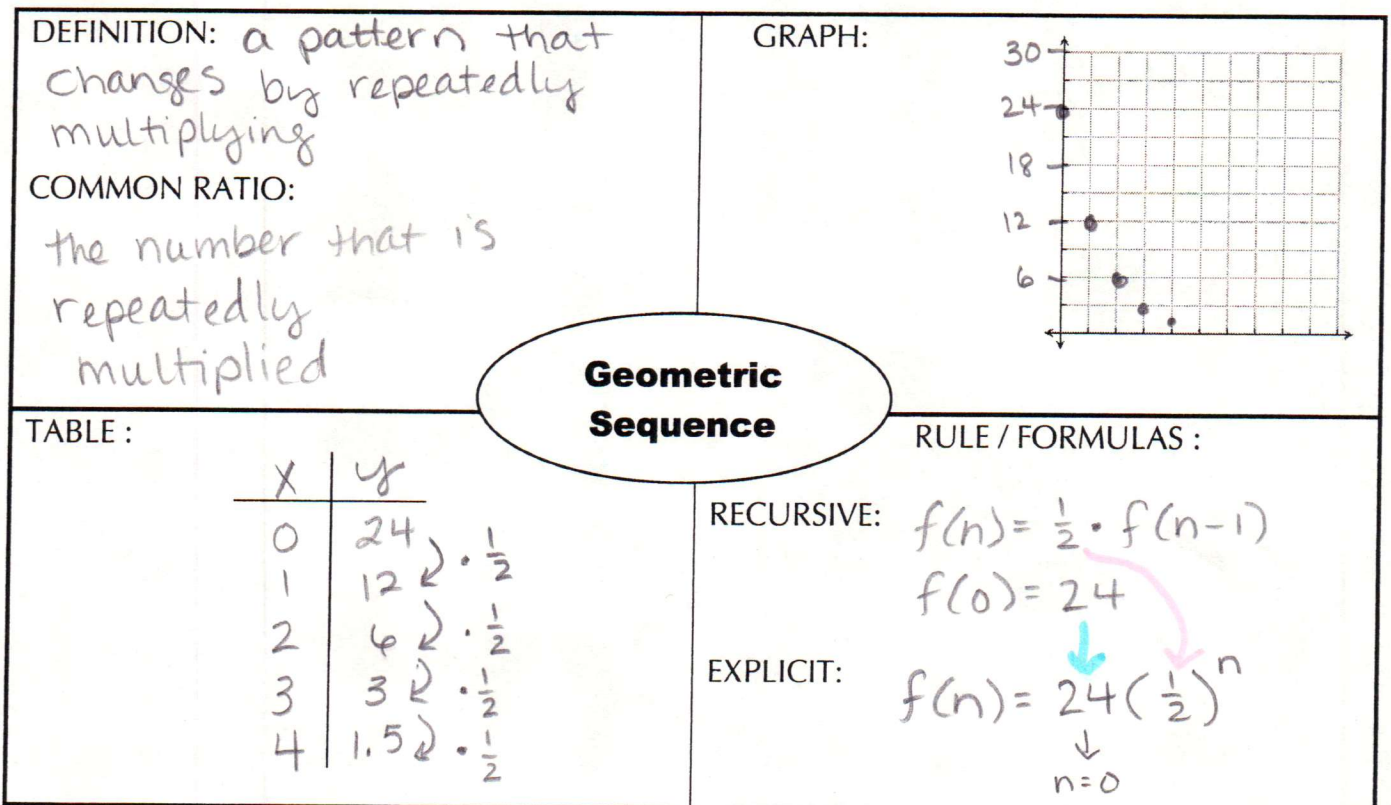 DEFINITION: a pattern that
changes by repeatedly
multiplying
COMMON RATIO:
the number that is
repeatedly
multiplied
GRAPH:
30
24
18
12
6
Geometric
Sequence
TABLE :
x | y
0 | 24
1 | 12 · 1/2
2 | 6 · 1/2
3 | 3 · 1/2
4 | 1.5 · 1/2
RULE / FORMULAS :
RECURSIVE: f(n) = 1/2 · f(n-1)
f(0) = 24
EXPLICIT: f(n) = 24(1/2)^n
n=0